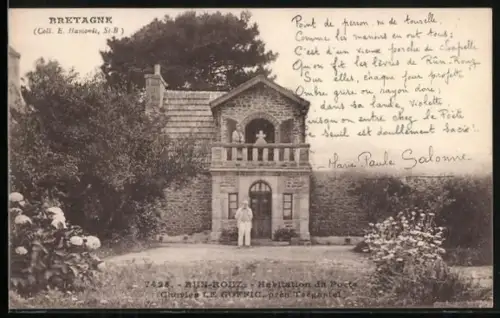 BRETAGNE
(Coll. E. Hamonic, St-B.)
Point de perron ni de tourelle,
Comme les manoirs en ont tous;
C'est d'un vieux porche de chapelle
Qu'on fit les lèvres de Rûn-Rouz
Sur elles, chaque jour profile
Ombre grise ou rayon doré,
dans sa lande, violette
puisqu'on entre chez le Poète
le seuil est doublement sacré!
Marie Paule Salonne
7428. - RUN-ROUZ. - Habitation du Poète
Charles LE GOFFIC, près Trégastel